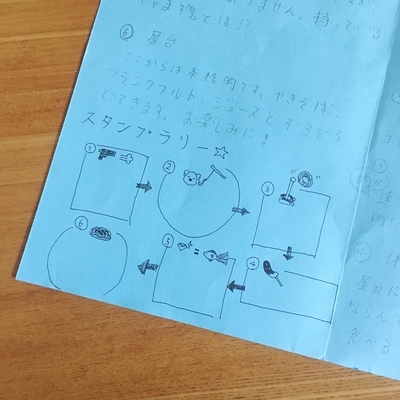 ゃま物とは!?
りません。持っている
⑥ 屋台
ここからは本格的です。やきそば、
フランクフルト、ジュースとぞろぞろ
でてきます。お楽しみに!
スタンプラリー☆
①
②
③
④
⑤
⑥
④
屋台に
ならんで
食べる